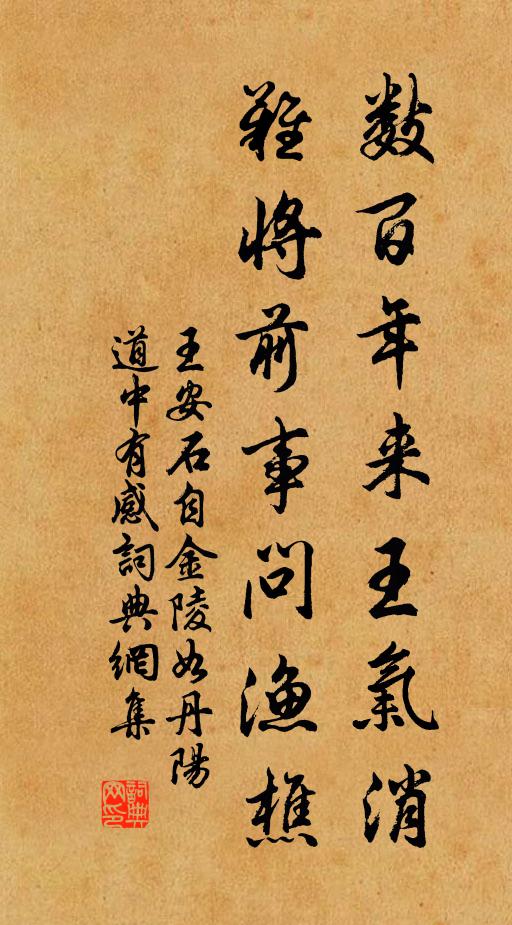 数百年来王氣消
難將前事問漁樵
王安石自金陵如丹陽
道中有感詞典網集
詞典
网印